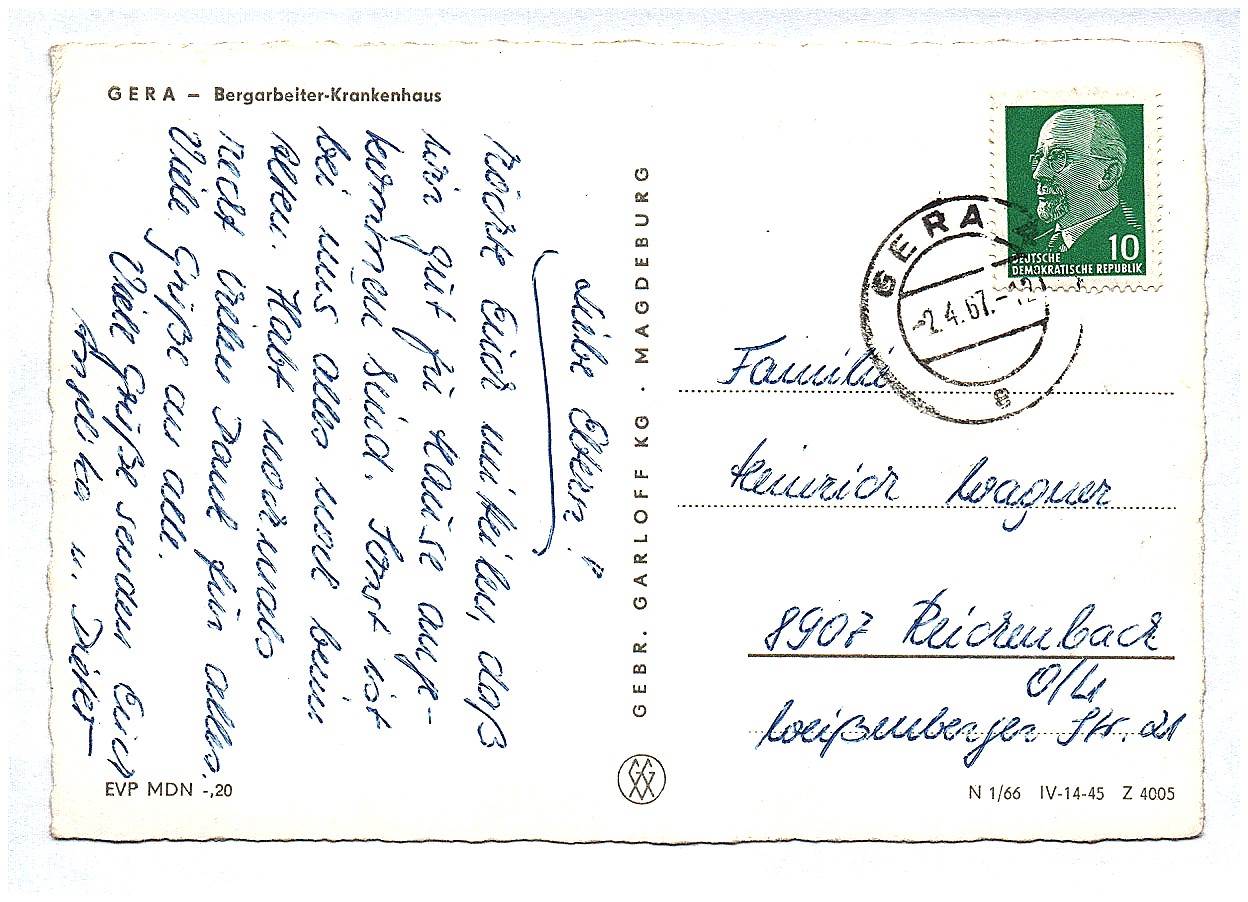 GERA – Bergarbeiter-Krankenhaus
Liebe Eltern!
Möchte Euch mitteilen, daß
wir gut zu Hause ange-
kommen sind. Sonst ist
bei uns alles noch beim
Alten. Habt nochmals
recht vielen Dank für alles.
Viele Grüße an alle.
Viele Grüße senden Euch
Angelika u. Dieter
EVP MDN -,20
GEBR. GARLOFF KG · MAGDEBURG
10
DEUTSCHE
DEMOKRATISCHE REPUBLIK
GERA
-2.4.67.-12
Familie
Heinrich Wagner
8907 Reichenbach
O/L
Weißenberger Str. 21
N 1/66 IV-14-45 Z 4005